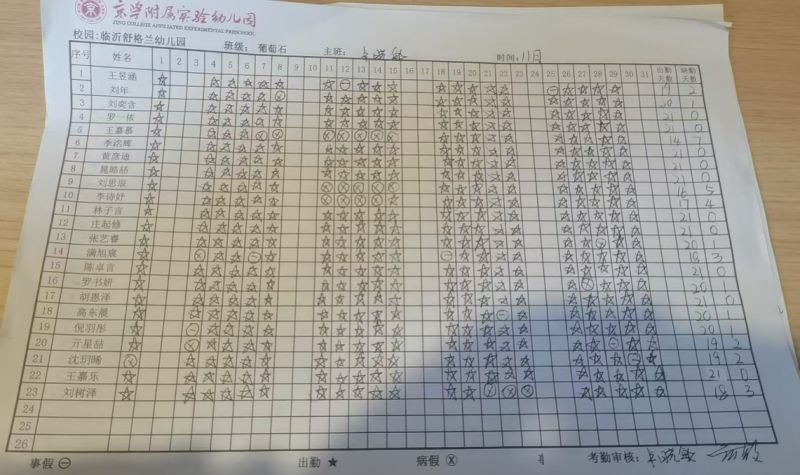 京学附属实验幼儿园
JING COLLEGE AFFILIATED EXPERIMENTAL PRESCHOOL
校园:临沂舒格兰幼儿园 班级: 葡萄石 主班: 时间: 11月
序号 姓名 1 2 3 4 5 6 7 8 9 10 11 12 13 14 15 16 17 18 19 20 21 22 23 24 25 26 27 28 29 30 31 出勤天数 缺勤天数
1 王昱涵 19 2
2 刘年 20 1
3 刘奕含 21 0
4 罗一依 21 0
5 王嘉慕 14 7
6 季洺辉 21 0
7 黄彦迪 21 0
8 晁皓喆 21 0
9 刘思辰 16 5
10 李诗妤 17 4
11 林子言 21 0
12 庄起修 21 0
13 张艺睿 20 1
14 满旭宸 18 3
15 陈卓言 21 0
16 罗书妍 20 1
17 胡恩泽 21 0
18 高东晨 20 1
19 倪羽彤 20 1
20 亓星喆 19 2
21 沈玥晞 19 2
22 王嘉乐 21 0
23 刘树泽 18 3
24
25
26
事假 ⊖ 出勤 ★ 病假 ⊗ 考勤审核: